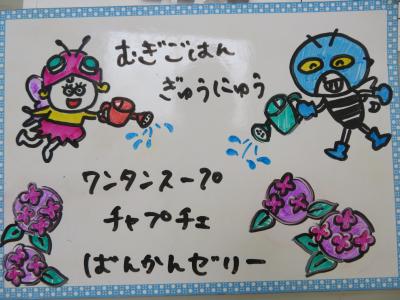 むぎごはん
ぎゅうにゅう
ワンタンスープ
チャプチェ
ばんかんゼリー